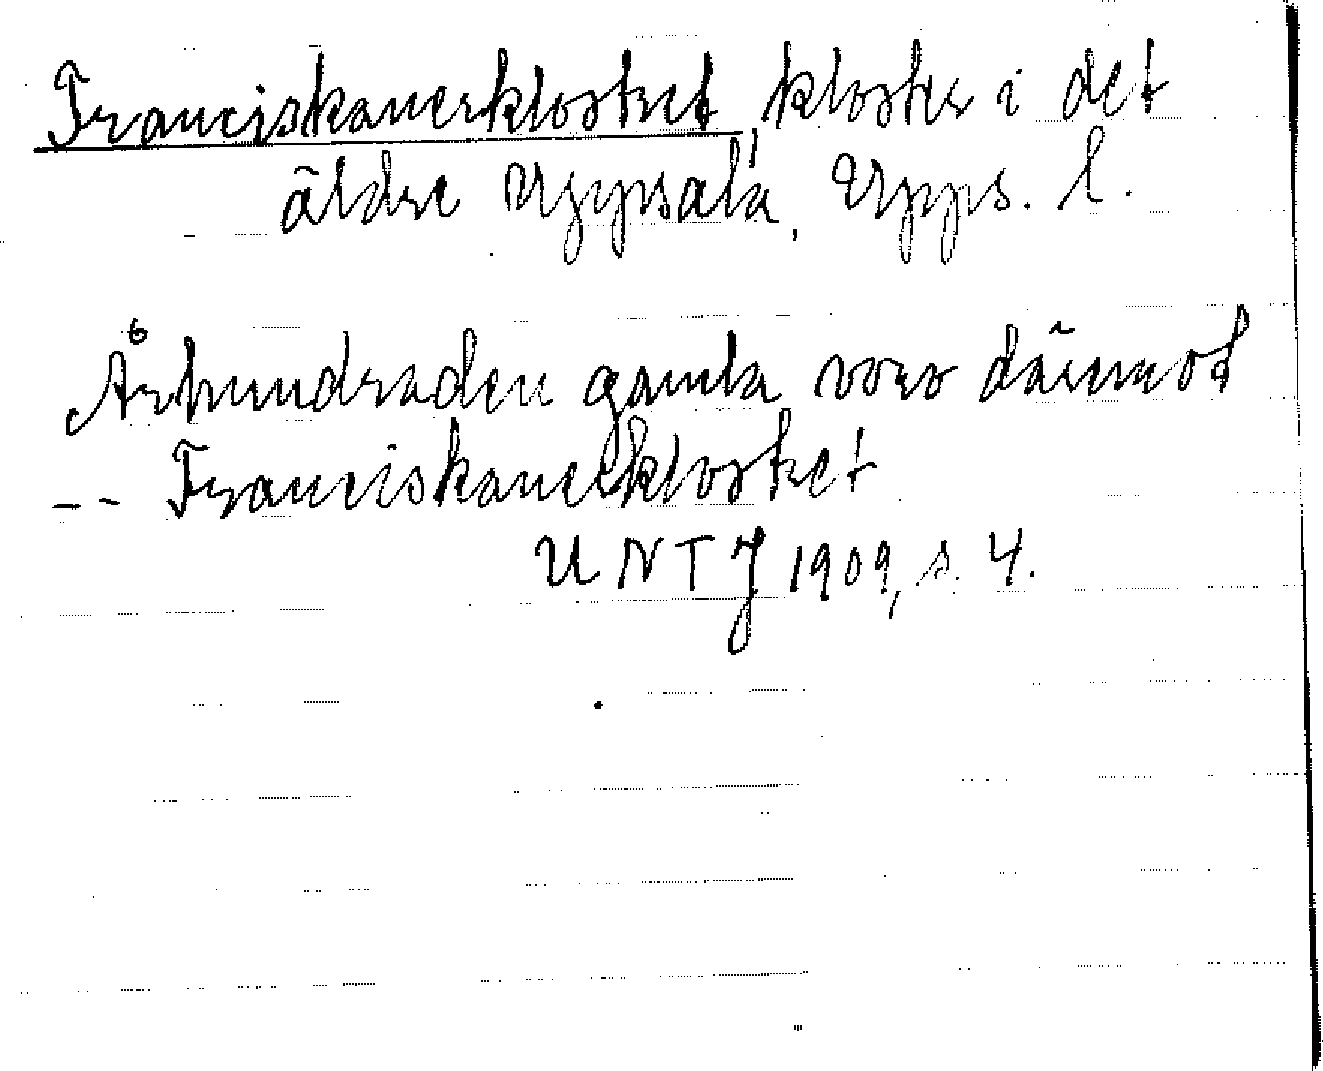 Franciskanerklostret, kloster i det
äldre Uppsala, Upps. l.
Århundraden gamla voro däremot
-- Franciskanerklostret
UNTJ 1909, s. 4.